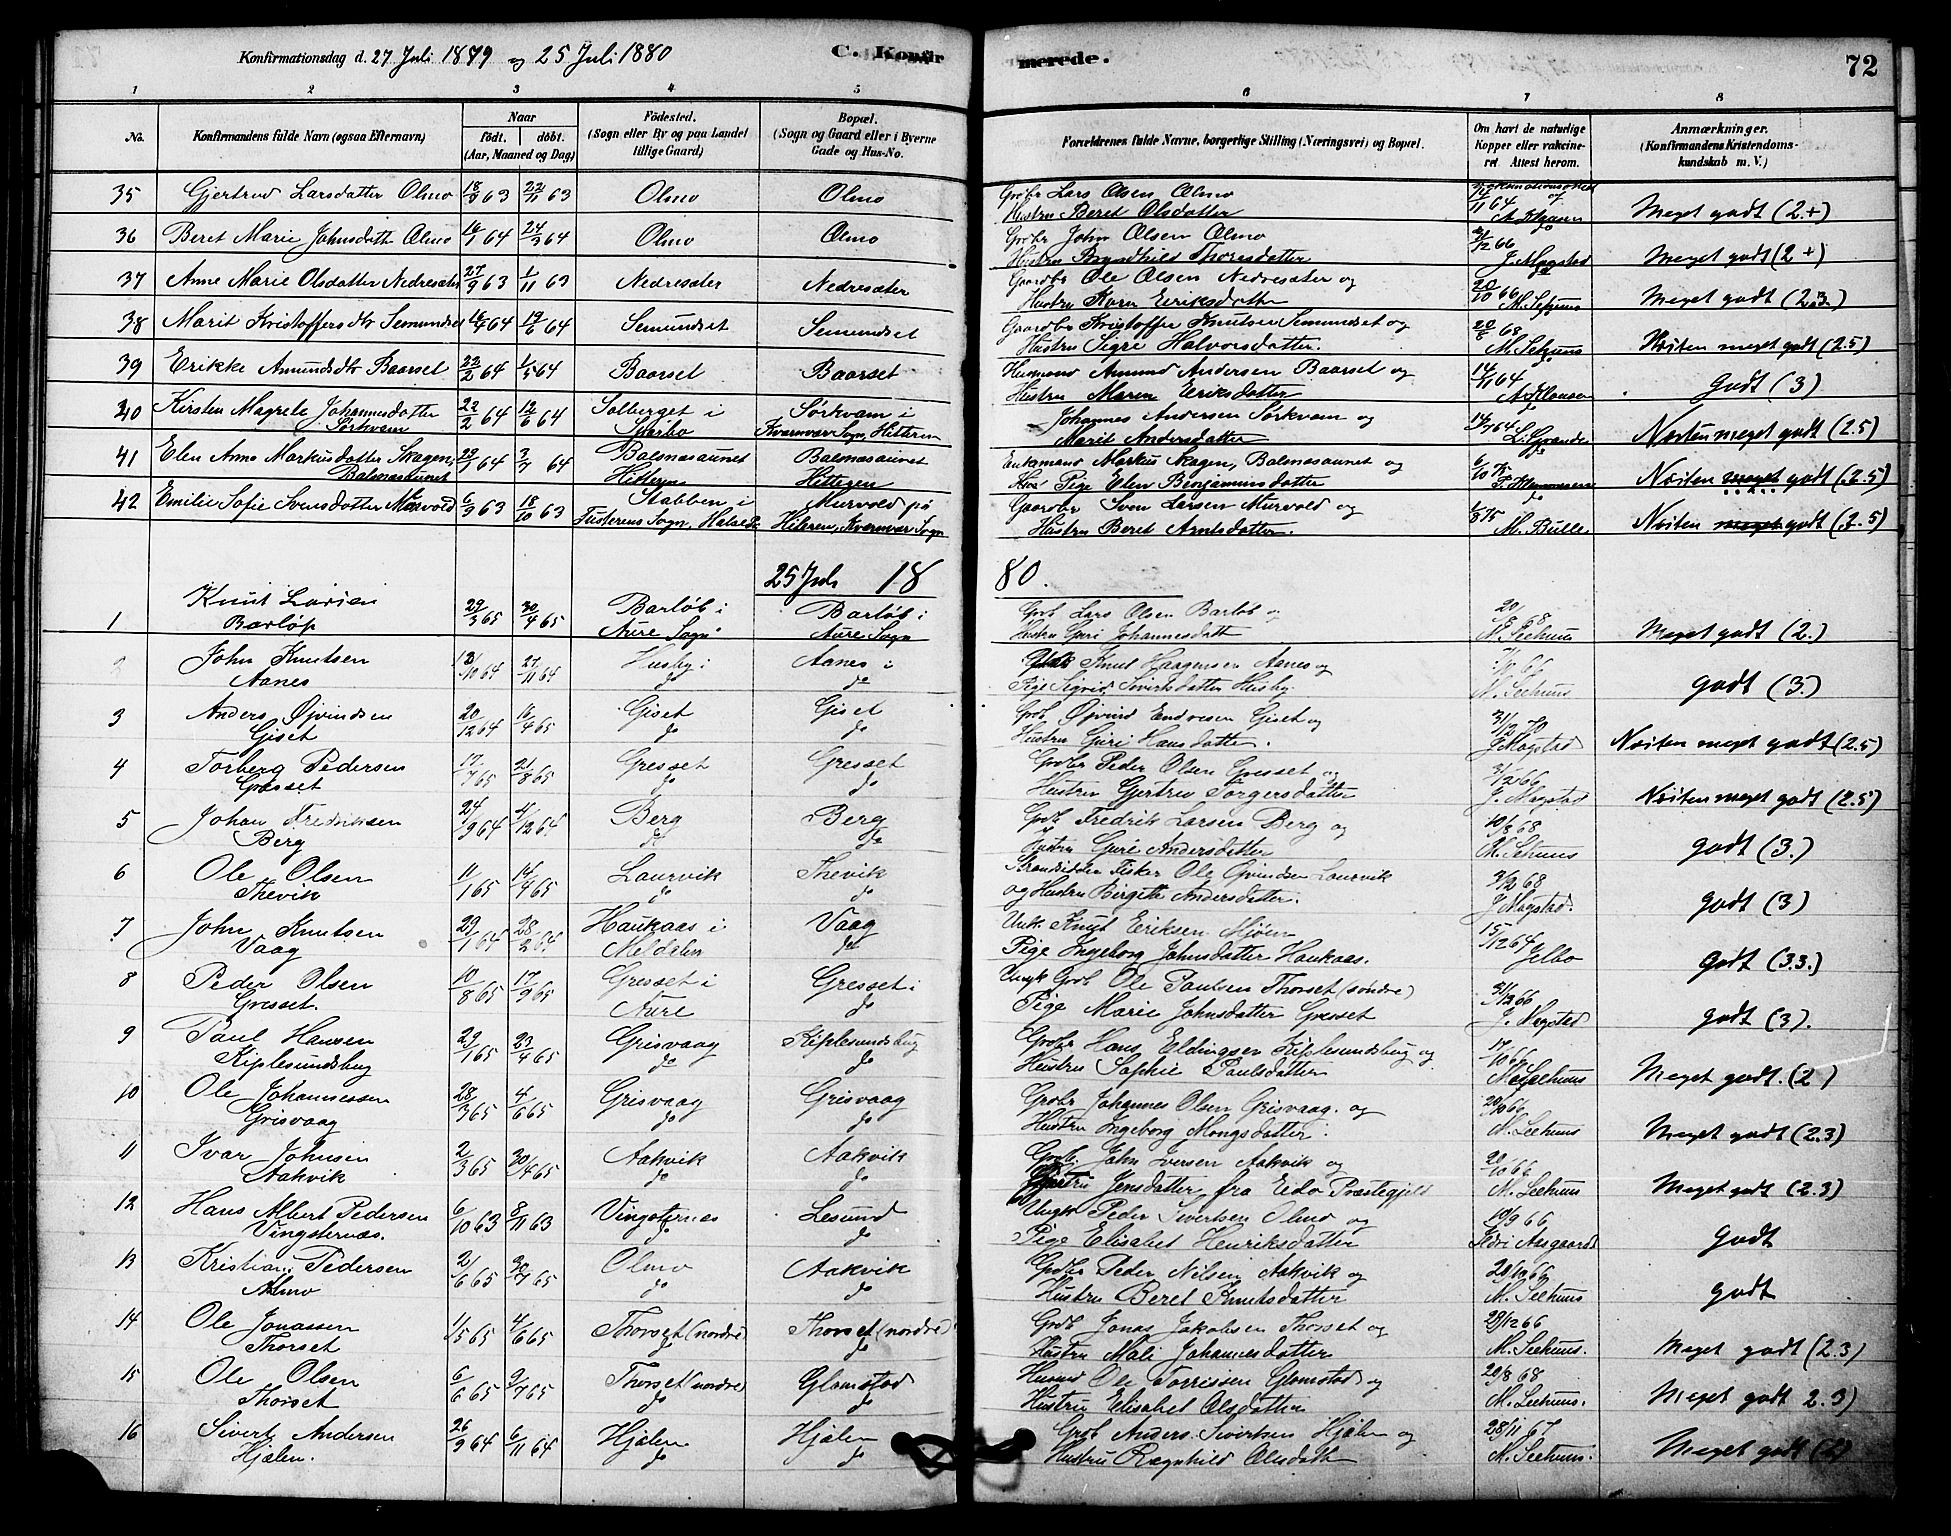 Konfirmationsdag d. 27 Juli 1879 og 25 Juli 1880
C. Konfir
merede.
72
1 2 3 4 5 6 7 8
No.
Konfirmandens fulde Navn (ogsaa Efternavn)
Naar
født. døbt.
(Aar, Maaned og Dag)
Fødested.
(Sogn eller By og paa Landet
tillige Gaard)
Bopæl.
(Sogn og Gaard eller i Byerne
Gade og Hus-No.
Forældrenes fulde Navne, borgerlige Stilling (Næringsvei) og Bopæl.
Om havt de naturlige
Kopper eller vakcine-
ret Attest herom.
Anmærkninger.
(Konfirmandens Kristendoms-
kundskab m. V.)
35 Gjertrud Larsdatter Olmo 18/9 63 22/11 63 Olmo Olmo Grdbr Lars Olsen Olmo
Hustru Beret Olsdatter 11 64 Meget godt (2.+)
36 Beret Marie Johnsdatter Olmo 16/1 64 24/3 64 Olmo Olmo Grdbr John Olsen Olmo
Hustru Bryndhild Thoresdatter 12 66 J. Magstad Meget godt (2+)
37 Anne Marie Olsdatter Nedresæter 27/9 63 1/11 63 Nedresæter Nedresæter Gaardbr Ole Olsen Nedresæter og
Hustru Karen Eeriksdatter 20/10 66 M. Seehuus Meget godt (2.3.)
38 Marit Kristoffersdtr Semundset 16/4 64 19/6 64 Semundset Semundset Gaardbr Kristoffer Knutsen Semundset og
Hustru Sigre Halvorsdatter. 20/8 68 M. Seehuus Næsten meget godt (2.5)
39 Erikke Amundsdtr Baarset 22/2 64 1/5 64 Baarset Baarset Husmand Amund Andersen Baarset og
Hustru Maren Eriksdatter 14/11 64 A. Klausen Godt (3)
40 Kirsten Magrete Johannesdatter
Sørkvam 22/2 64 12/6 64 Solberget i
Sparbo Sørkvam i
Kvarnvær Sogn, Hitteren Johannes Andersen Sørkvam og
Marit Andersdatter 14/7 64 L. Grande Næsten meget godt (2.5)
41 Elen Anne Markusdatter Skagen,
Balsnæsaunet 64 3/7 64 Balsnæsaunet
Hitteren Balsnæsaunet
Hitteren Enkemand Markus Skagen, Balsnæsaunet og
Pige Elen Benjaminsdatter 6/10 Næsten meget godt (2.5)
42 Emilie Sofie Svensdatter Murvold 6/3 63 18/10 63 Stabben i
Murvold på
Hiteren, Kvarnvær Sogn Gaardbr Sven Larsen Murvold og
Hustru Beret Arntsdatter. 1/8 75 M. Bulle Næsten meget godt (2.5)
25 Juli 18
80.
1 Knut Larsen
Barløp 29/3 65 30/4 65 Barløb i
Aure Sogn Barløb i
Aure Sogn Grdb Lars Olsen Barløb og
Hustru Guri Johannesdatt 20/8 68 M. Seehuus Meget godt (2.)
2 John Knutsen
Aanes 13/10 64 27/11 64 Husby i
do Aanes i
do Knut Haagensen Aanes og
Pige Sigrid Sivertsdatter Husby. M. Seehuus godt (3.)
3 Anders Øjvindsen
Giset 20/12 64 16/4 65 Giset
do Giset
do Grdb Øjvind Endresen Giset og
Hustru Guri Hansdatter. 31/12 J. Magstad Næsten meget godt (2.5)
4 Torberg Pedersen
Gresset 17/7 65 21/8 65 Gresset
do Gresset
do Grdbr Peder Olsen Gresset og
Hustru Gjertru Torgersdatter 31/12 66 J. Magstad Næsten meget godt (2.5)
5 Johan Fredriksen
Berg 24/9 64 4/12 64 Berg
do Berg
do Grdb Fredrik Larsen Berg og
Hustru Guri Andersdatter 10/8 68 M. Seehuus godt (3.)
6 Ole Olsen
Thevik 11/1 65 14/4 65 Laurvik
do Thevik
do Strandsidder Fisker Ole Øvindsen Laurvik
og Hustru Birgitte Andersdatter. 31/12 68 J. Magstad. godt (3)
7 John Knutsen
Vaag 29/1 64 28/2 64 Haukaas i
Meldalen Vaag
do Unk. Knut Eriksen Mjøen
Pige Ingeborg Johnsdatter Haukaas. 15/12 64 Jelbo godt (3.3.)
8 Peder Olsen
Gresset. 10/8 65 17/9 65 Gresset i
Aure Gresset i
do Ungk Grdb Ole Paulsen Thorset (søndre)
Pige Marie Johnsdatter Gresset 31/12 66 J. Magstad godt (3).
9 Paul Hansen
Kiplesundsbug 29/1 65 23/4 65 Grisvaag
do Kiplesundsbug
do Grdbr Hans Eldingsen Kiplesundsbug og
Hustru Sophie Paulsdatter 17/10 66 M. Seehuus Meget godt. (2)
10 Ole Johannessen
Grisvaag 28/3 65 4/6 65 Grisvaag
do Grisvaag
do Grdbr Johannes Olsen Grisvaag. og
Hustru Ingeborg Mongsdatter. 20/10 66 M. Seehuus Meget godt (2.3)
11 Ivar Johnsen
Aakvik 2/3 65 30/4 65 Aakvik
do Aakvik
do Grdb. John Iversen Aakvik og
Jensdatter fra Eido Præstegjeld 20/10 66 M. Seehuus Meget godt (2.3)
12 Hans Albert Pedersen
Vingsternæs. 6/10 63 8/11 63 Vingsternæs
do Lesund
do Ungk Peder Sivertsen Olmo og
Pige Elisabet Henriksdatter 10/9 66 Aasgaard godt
13 Kristian Pedersen
Almo 21/6 65 30/7 65 Olmo
do Aakvik
do Grdbr Peder Nilsen Aakvik og
Hustru Beret Knutsdatter 20/10 66 M. Seehuus godt
14 Ole Jonassen
Thorset 1/5 65 4/6 65 Thorset (nordre)
do Thorset (nordre)
do Grdb Jonas Jakobsen Thorset og
Hustru Mali Johannesdatter 29/12 66 M. Seehuus. Meget godt (2.3)
15 Ole Olsen
Thorset 6/6 65 9/7 65 Thorset (nordre)
do Glomstad
do Husmd Ole Torrissen Glomstad og
Hustru Elisabet Olsdatter 20/8 68 M. Seehuus. Meget godt 2.3)
16 Sivert Andersen
Hjælen. 26/9 64 6/11 64 Hjælen
do Hjælen
do Grdb Anders Sivertsen Hjælen og
Hustru Ragnhild Olsdatter 28/11 67 M. Seehuus. Meget godt (2)